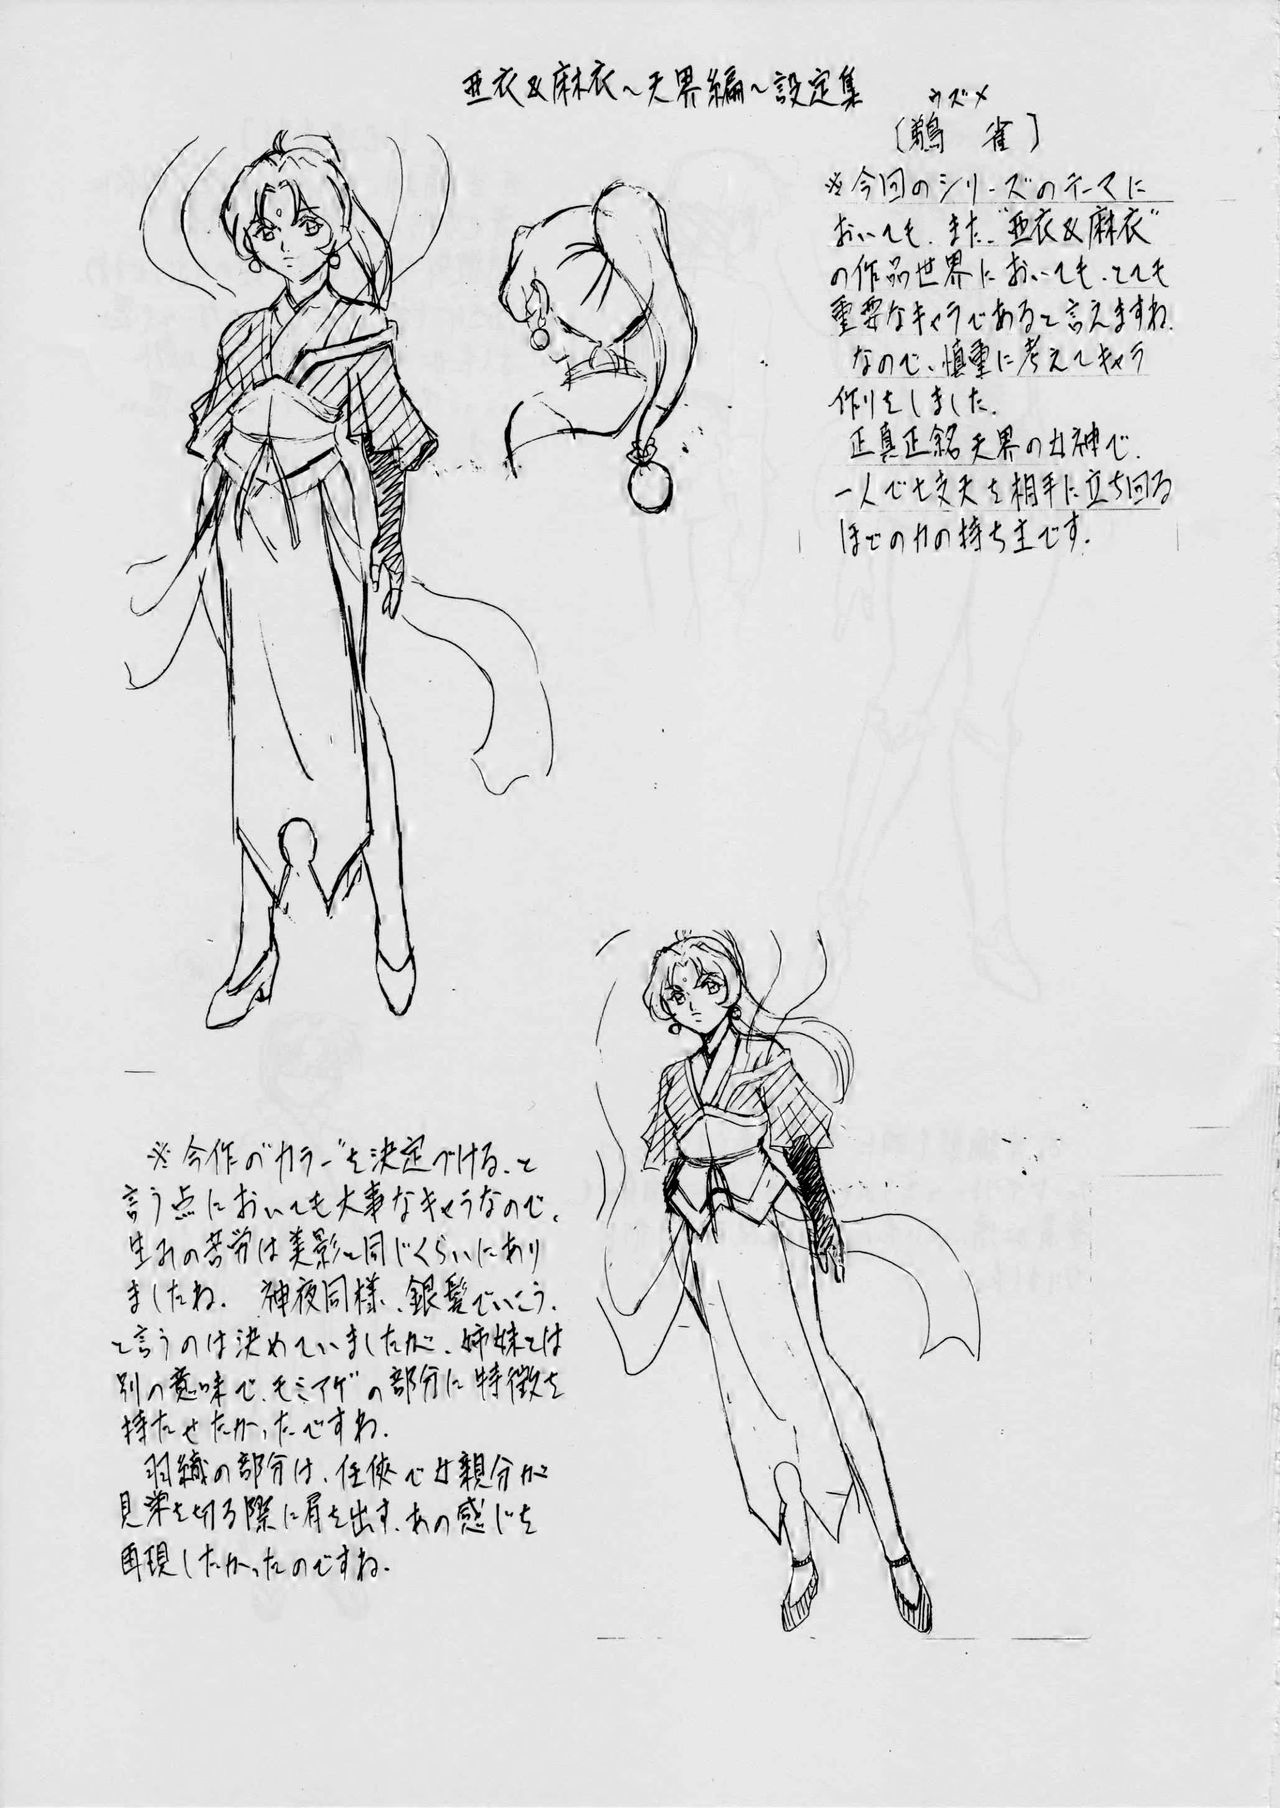 亜衣&麻衣～天界編～設定集
ウズメ
〔鵜 雀〕
※今回のシリーズのテーマに
おいても、また、"亜衣&麻衣"
の作品世界においても、とても
重要なキャラであると言えますね。
なので、慎重に考えてキャラ
作りをしました。
正真正銘天界の女神で、
一人で七文夫を相手に立ち回る
ほどの力の持ち主です。
※今作の"カラー"を決定づける、と
言う点においても大事なキャラなので、
生みの苦労は美影と同じくらいにあり
ましたね。 神夜同様、銀髪でいこう、
と言うのは決めていましたが、姉妹とは
別の意味で、モミアゲの部分に特徴を
持たせたかったですね。
羽織の部分は、任侠で女親分が
見栄を切る際に肩を出す、あの感じを
再現したかったのですね。